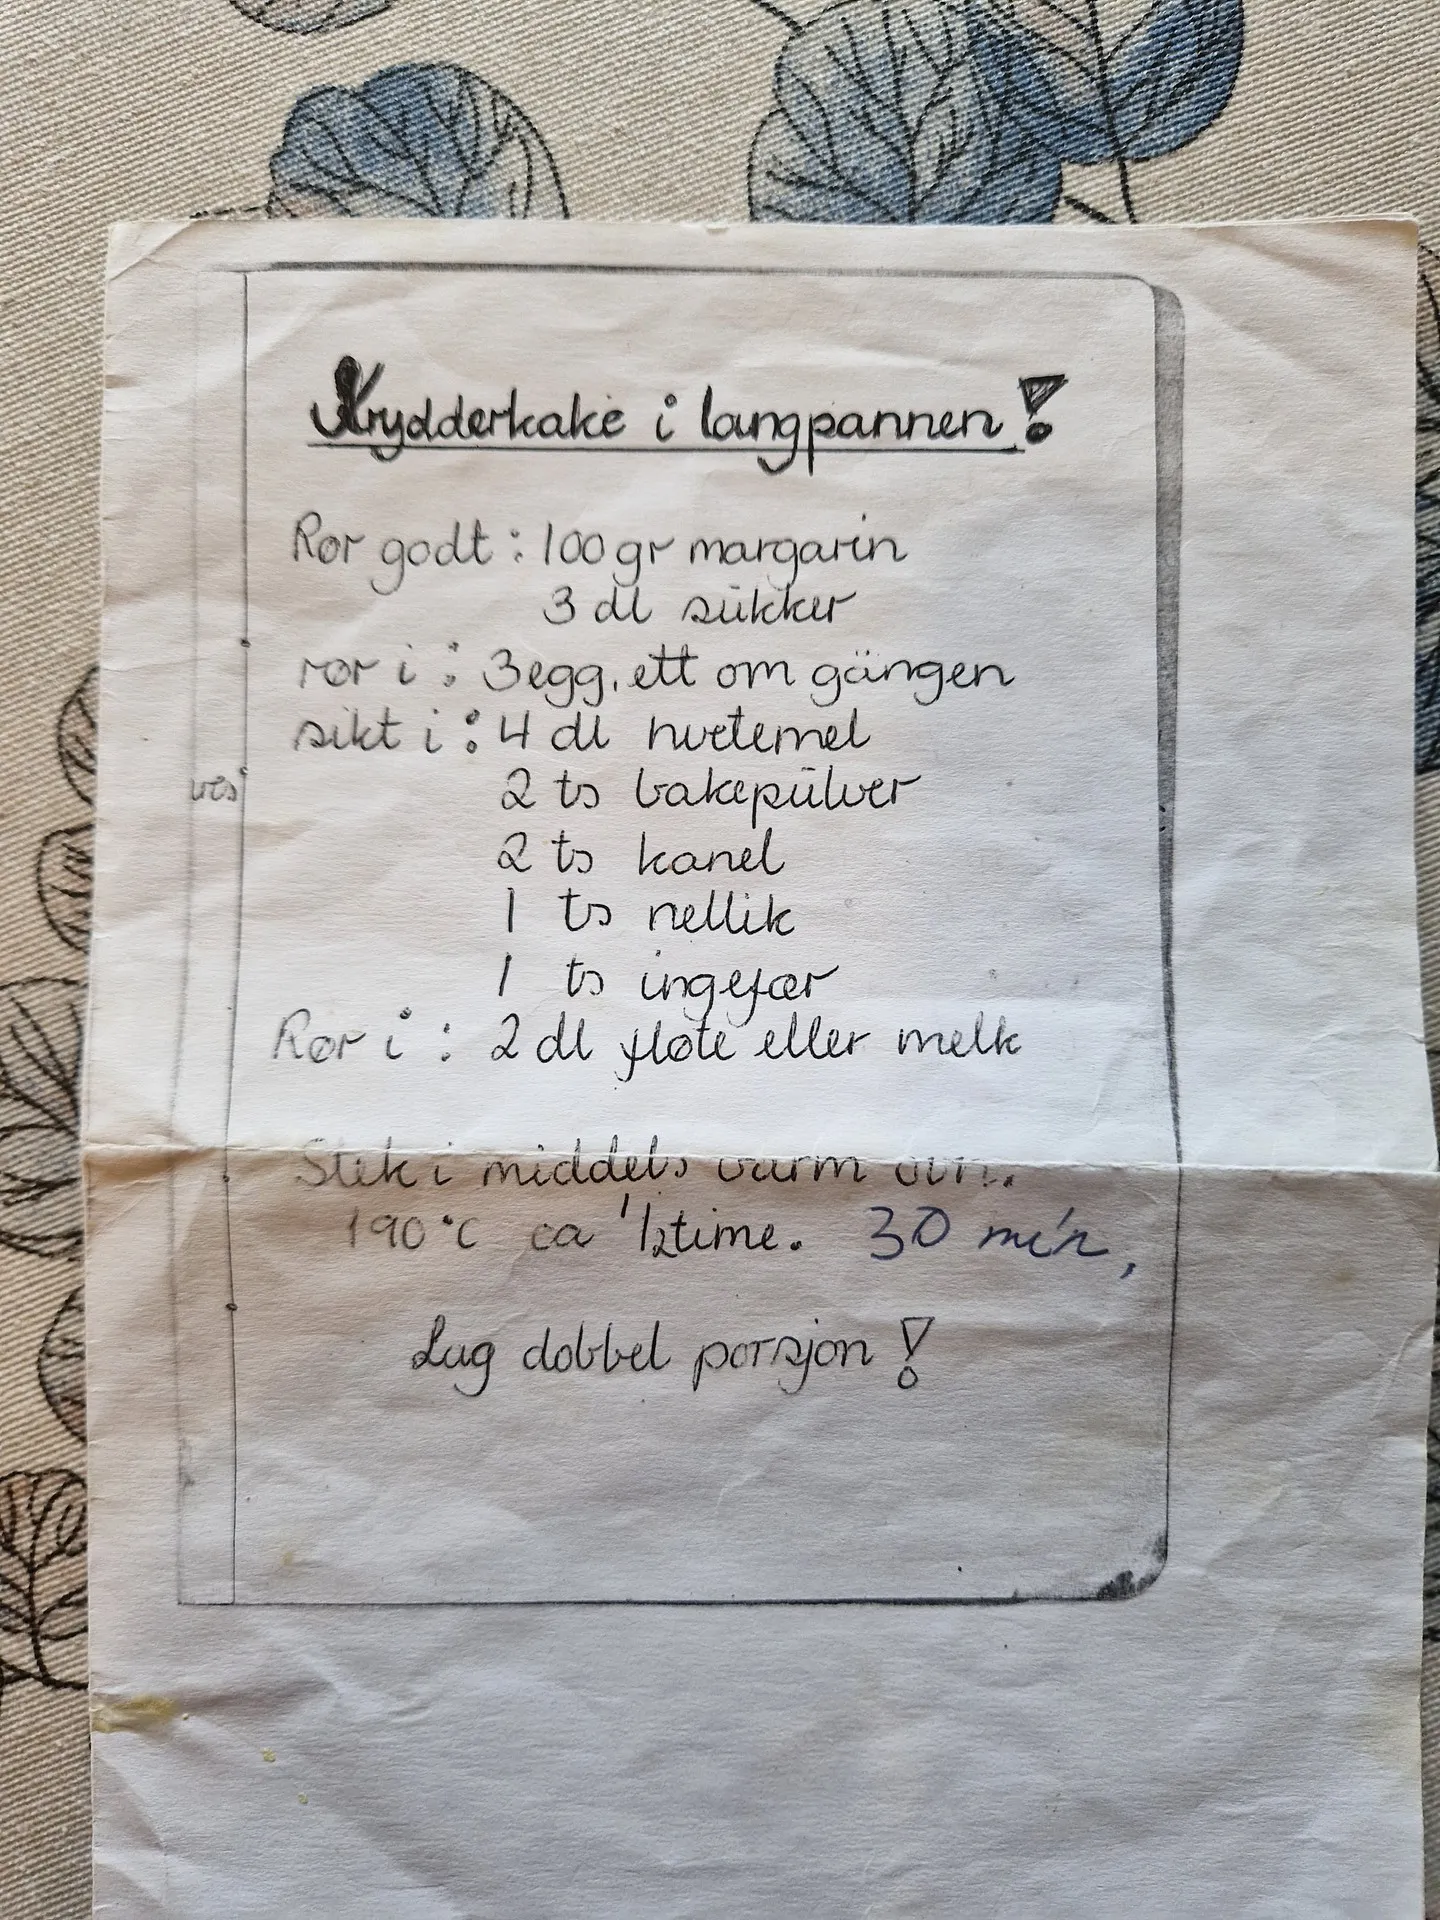 Krydderkake i langpannen!
Rør godt: 100 gr margarin
3 dl sukker
rør i: 3 egg, ett om gangen
sikt i: 4 dl hvetemel
2 ts bakepulver
2 ts kanel
1 ts nellik
1 ts ingefær
Rør i: 2 dl fløte eller melk
Stek i middels varm ovn.
190°C ca 1/2 time. 30 min,
Lag dobbel porsjon!